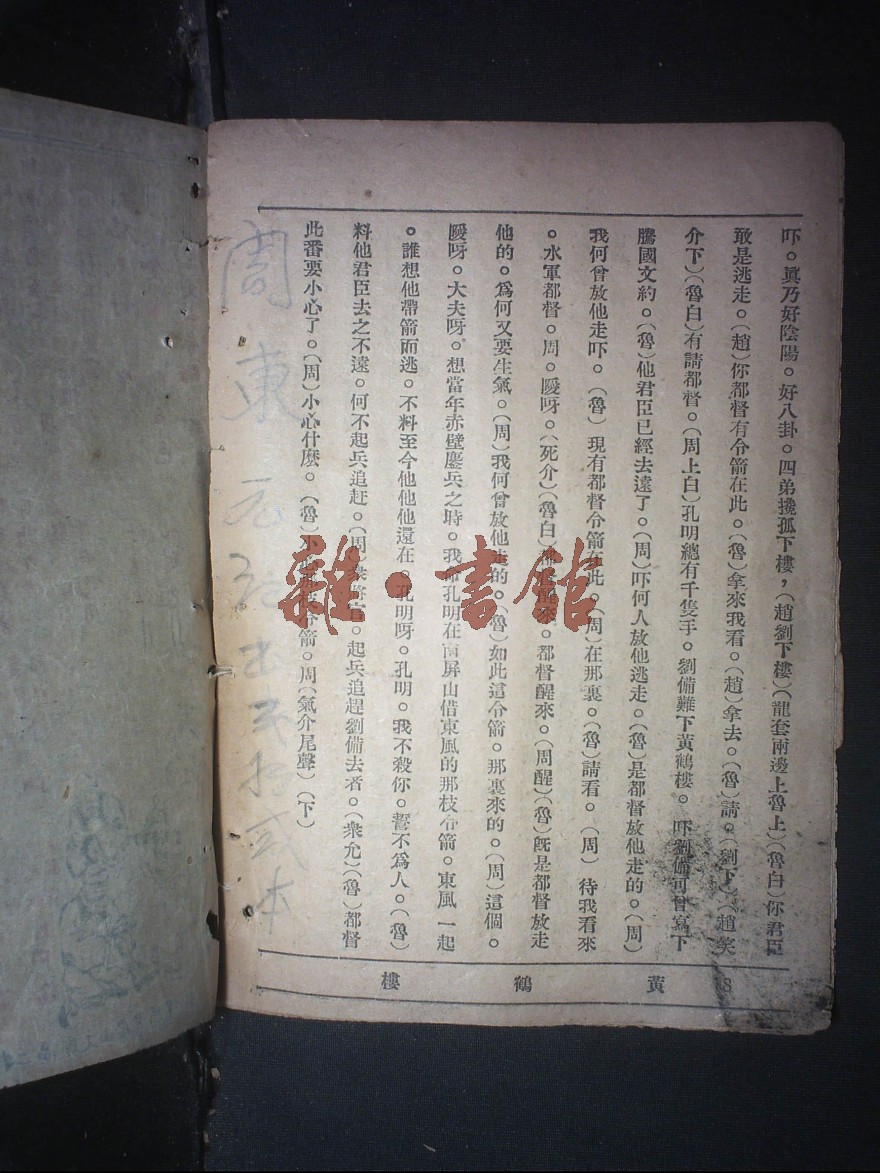 吓。眞乃好陰陽。好八卦。四弟攙孤下樓，（趙劉下樓）（龍套兩邊上魯上）（魯白）你君臣
敢是逃走。（趙）你都督有令箭在此。（魯）拿來我看。（趙）拿去。（魯）請。（劉下）（趙笑
介下）（魯白）有請都督。（周上白）孔明總有千隻手。劉備難下黃鶴樓。吓劉備可曾寫下
騰國文約。（魯）他君臣已經去遠了。（周）吓何人放他逃走。（魯）是都督放他走的。（周）
我何曾放他走吓。（魯）現有都督令箭在此。（周）在那裏。（魯）請看。（周）待我看來
。水軍都督。周。噯呀。（死介）（魯白）來。都督醒來。（周醒）（魯）旣是都督放走
他的。爲何又要生氣。（周）我何曾放他走的。（魯）如此這令箭。那裏來的。（周）這個。
噯呀。大夫呀。想當年赤壁鏖兵之時。我命孔明在南屏山借東風的那枝令箭。東風一起
。誰想他帶箭而逃。不料至今他他他還在。孔明呀。孔明。我不殺你。誓不爲人。（魯）
料他君臣去之不遠。何不起兵追赶。（周）衆官。起兵追趕劉備去者。（衆允）（魯）都督
此番要小心了。（周）小心什麼。（魯）小令箭。周（氣介尾聲）（下）
黃鶴樓
周東元
本
雜·書館